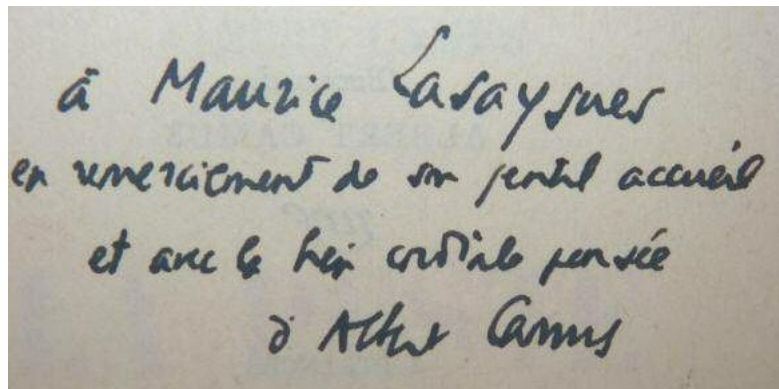 à Maurice Lasaygues
en remerciement de son gentil accueil
et avec la bien cordiale pensée
d'Albert Camus